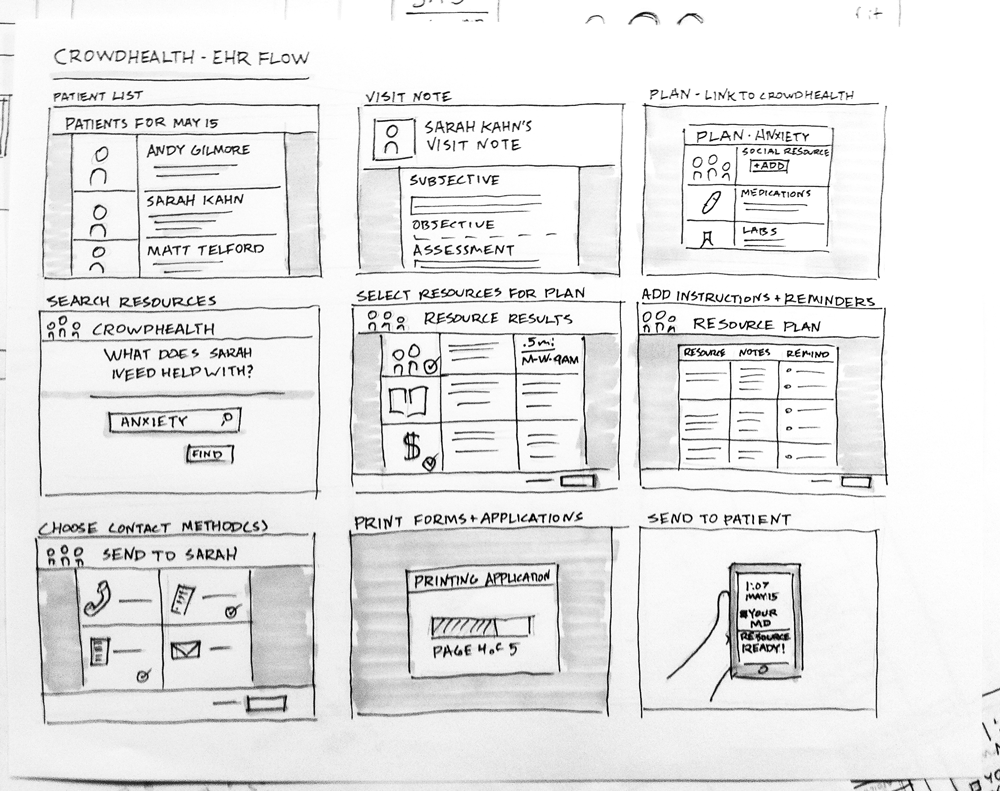 CROWDHEALTH - EHR FLOW
PATIENT LIST
PATIENTS FOR MAY 15
ANDY GILMORE
SARAH KAHN
MATT TELFORD
VISIT NOTE
SARAH KAHN'S
VISIT NOTE
SUBJECTIVE
OBJECTIVE
ASSESSMENT
PLAN - LINK TO CROWDHEALTH
PLAN - ANXIETY
SOCIAL RESOURCE
+ADD
MEDICATIONS
LABS
SEARCH RESOURCES
CROWDHEALTH
WHAT DOES SARAH
NEED HELP WITH?
ANXIETY
FIND
SELECT RESOURCES FOR PLAN
RESOURCE RESULTS
.5mi
M-W-9AM
$
ADD INSTRUCTIONS + REMINDERS
RESOURCE PLAN
RESOURCE NOTES REMIND
CHOOSE CONTACT METHOD(S)
SEND TO SARAH
PRINT FORMS + APPLICATIONS
PRINTING APPLICATION
PAGE 4 of 5
SEND TO PATIENT
1:07
MAY 15
YOUR
MD
RESOURCE
READY!